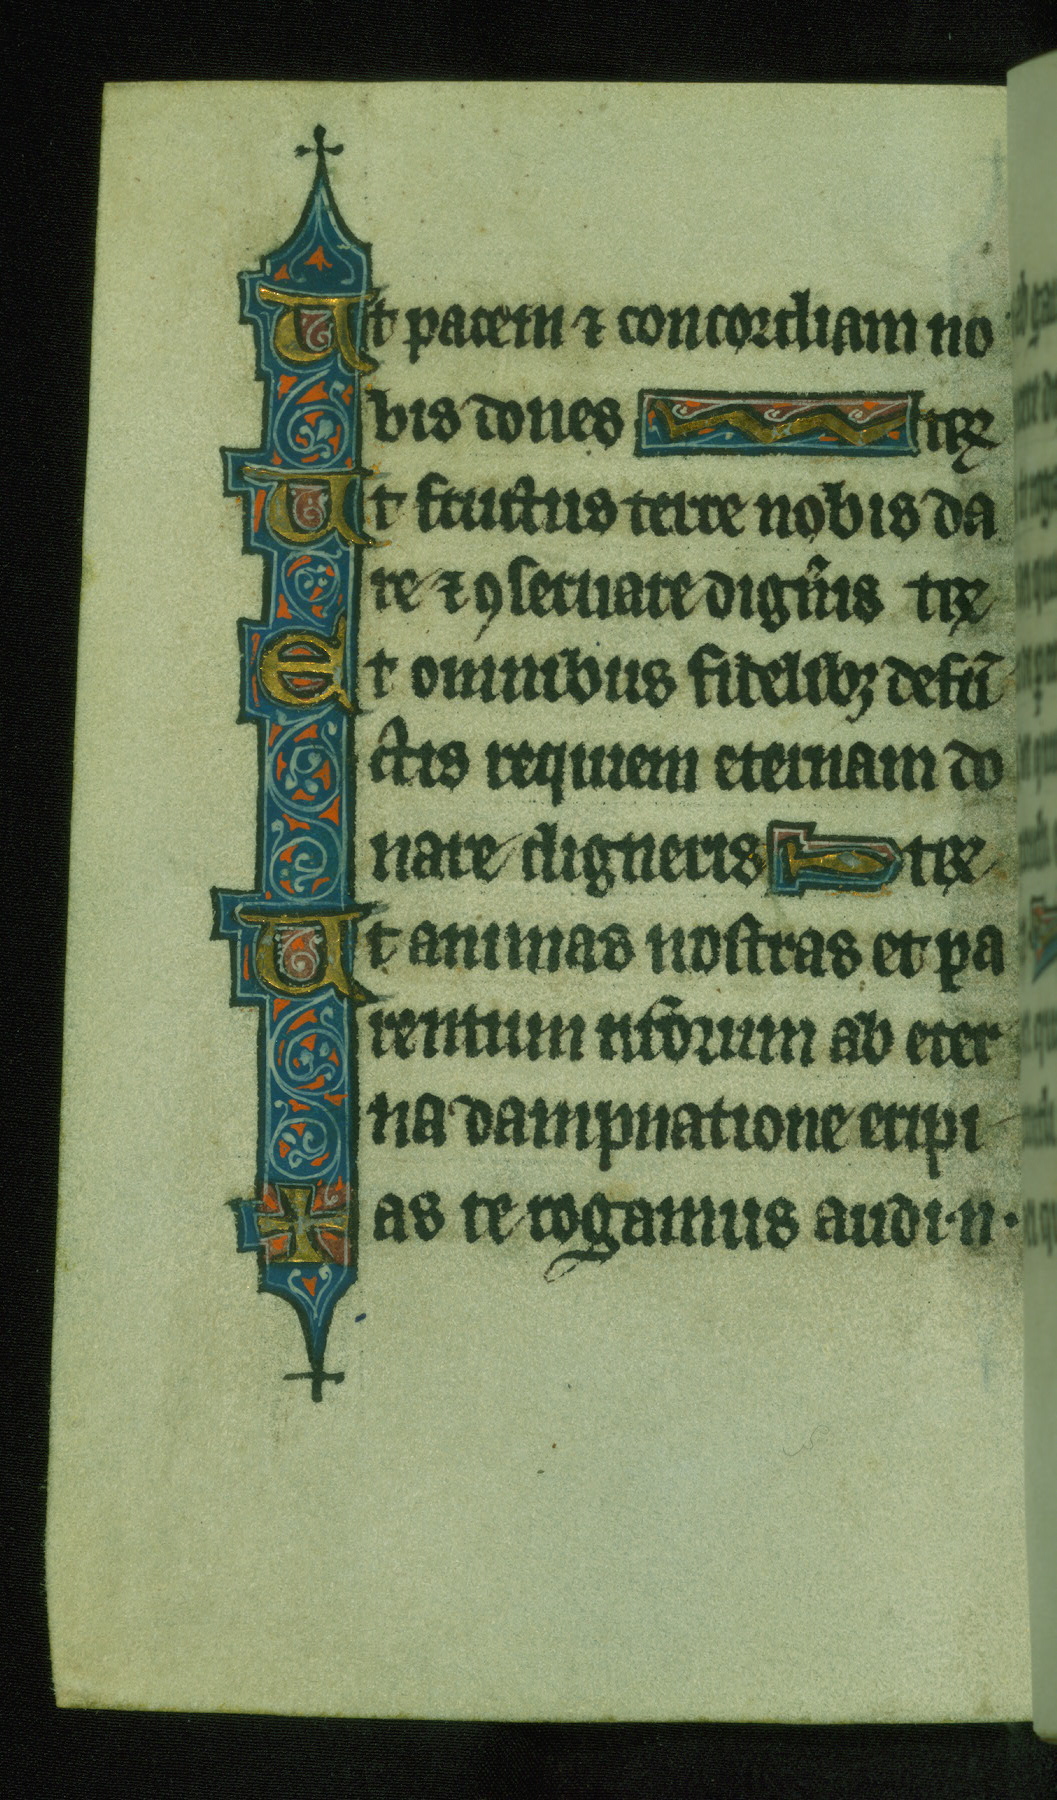 Ut pacem ⁊ concordiam no
bis dones terꝝ
Ut fructus terre nobis da
re ⁊ ꝯseruare digñis terꝝ
Et omnibus fidelibꝫ defũ
ctis requiem eternam do
nare digneris terꝝ
Ut animas nostras et pa
rentum nr̃orum ab eter
na dampnatione eripi
as te rogamus audi·n·